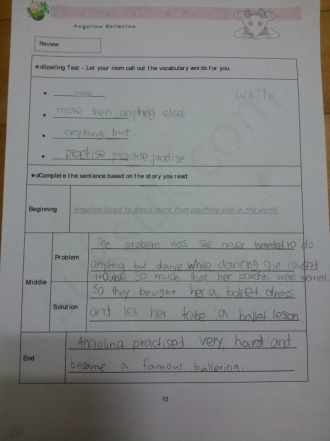 Angelina Ballerina
Review
★dSpelling Test - Let your mom call out the vocabulary words for you.
write
• more then anything else
• anything but
• practise practise, practise
★dComplete the sentence based on the story you read.
Beginning
Angelina loved to dance more than anything else in the world.
Middle
Problem
The problem was she never wanted to do
anything but dance while dancing she caused
trouble so much that her parents were worried
Solution
So they bought her a ballet dress
and let her take a ballet lesson
End
Angelina practised very, hard and
became a famous ballerina.
12